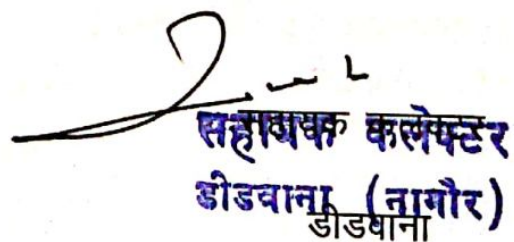 सहायक कलेक्टर
सहायक कलेक्टर
डीडवाना (नागौर)
डीडवाना